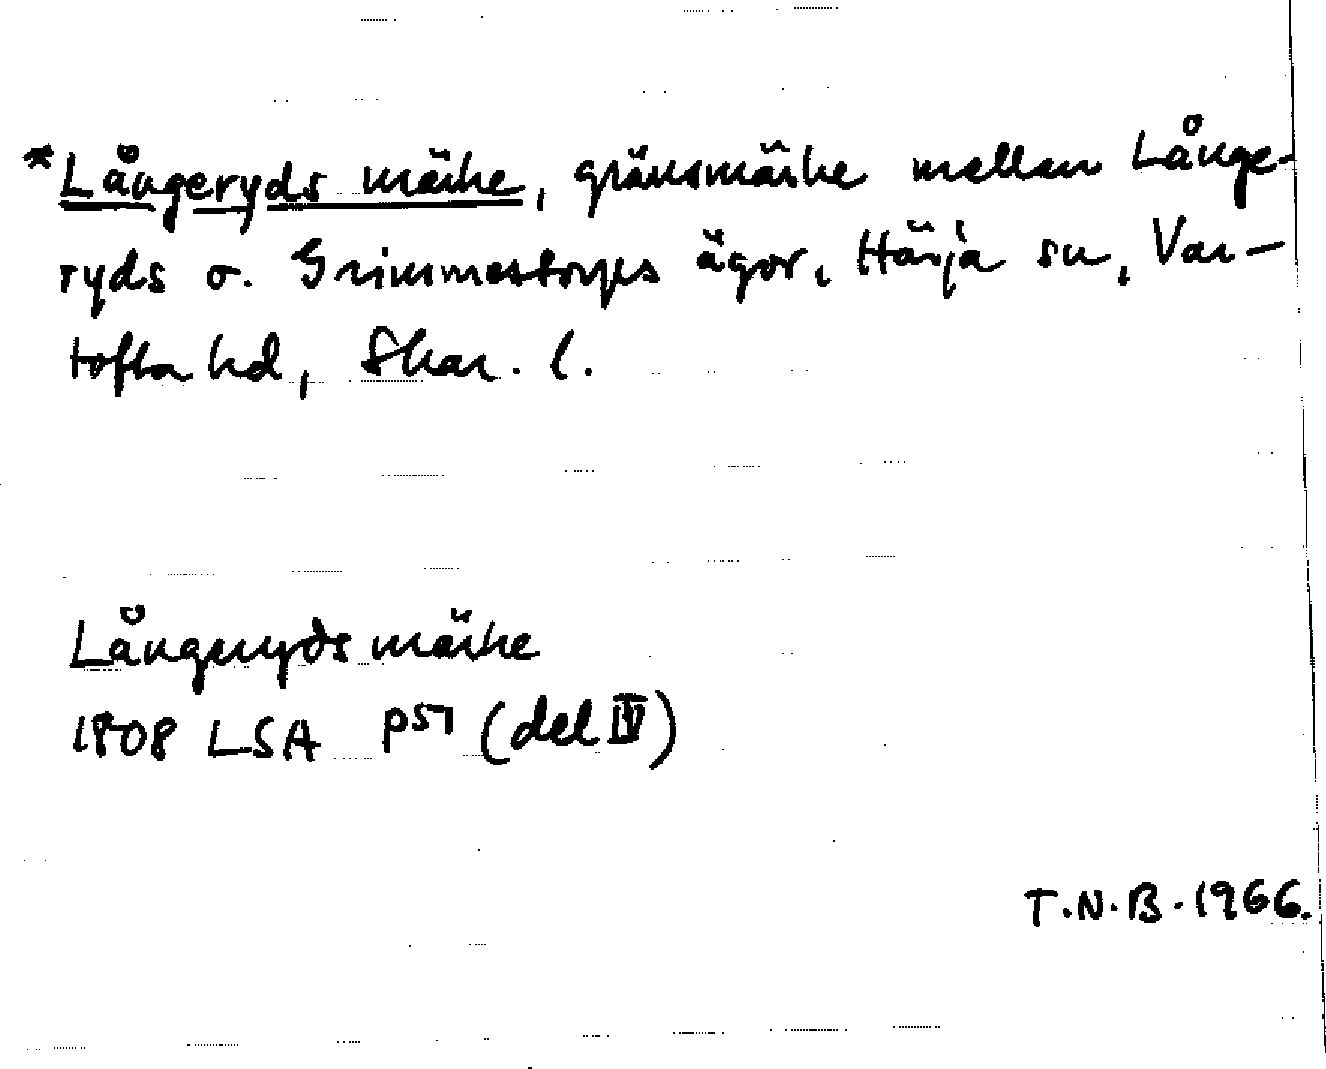 *Långeryds märke, gränsmärke mellan Långe-
ryds o. Grimmestorps ägor, Härja sn, Var-
tofta hd, Skar. l.
Långeryds märke
1808 LSA P57 (del IV)
T.N.B. 1966.